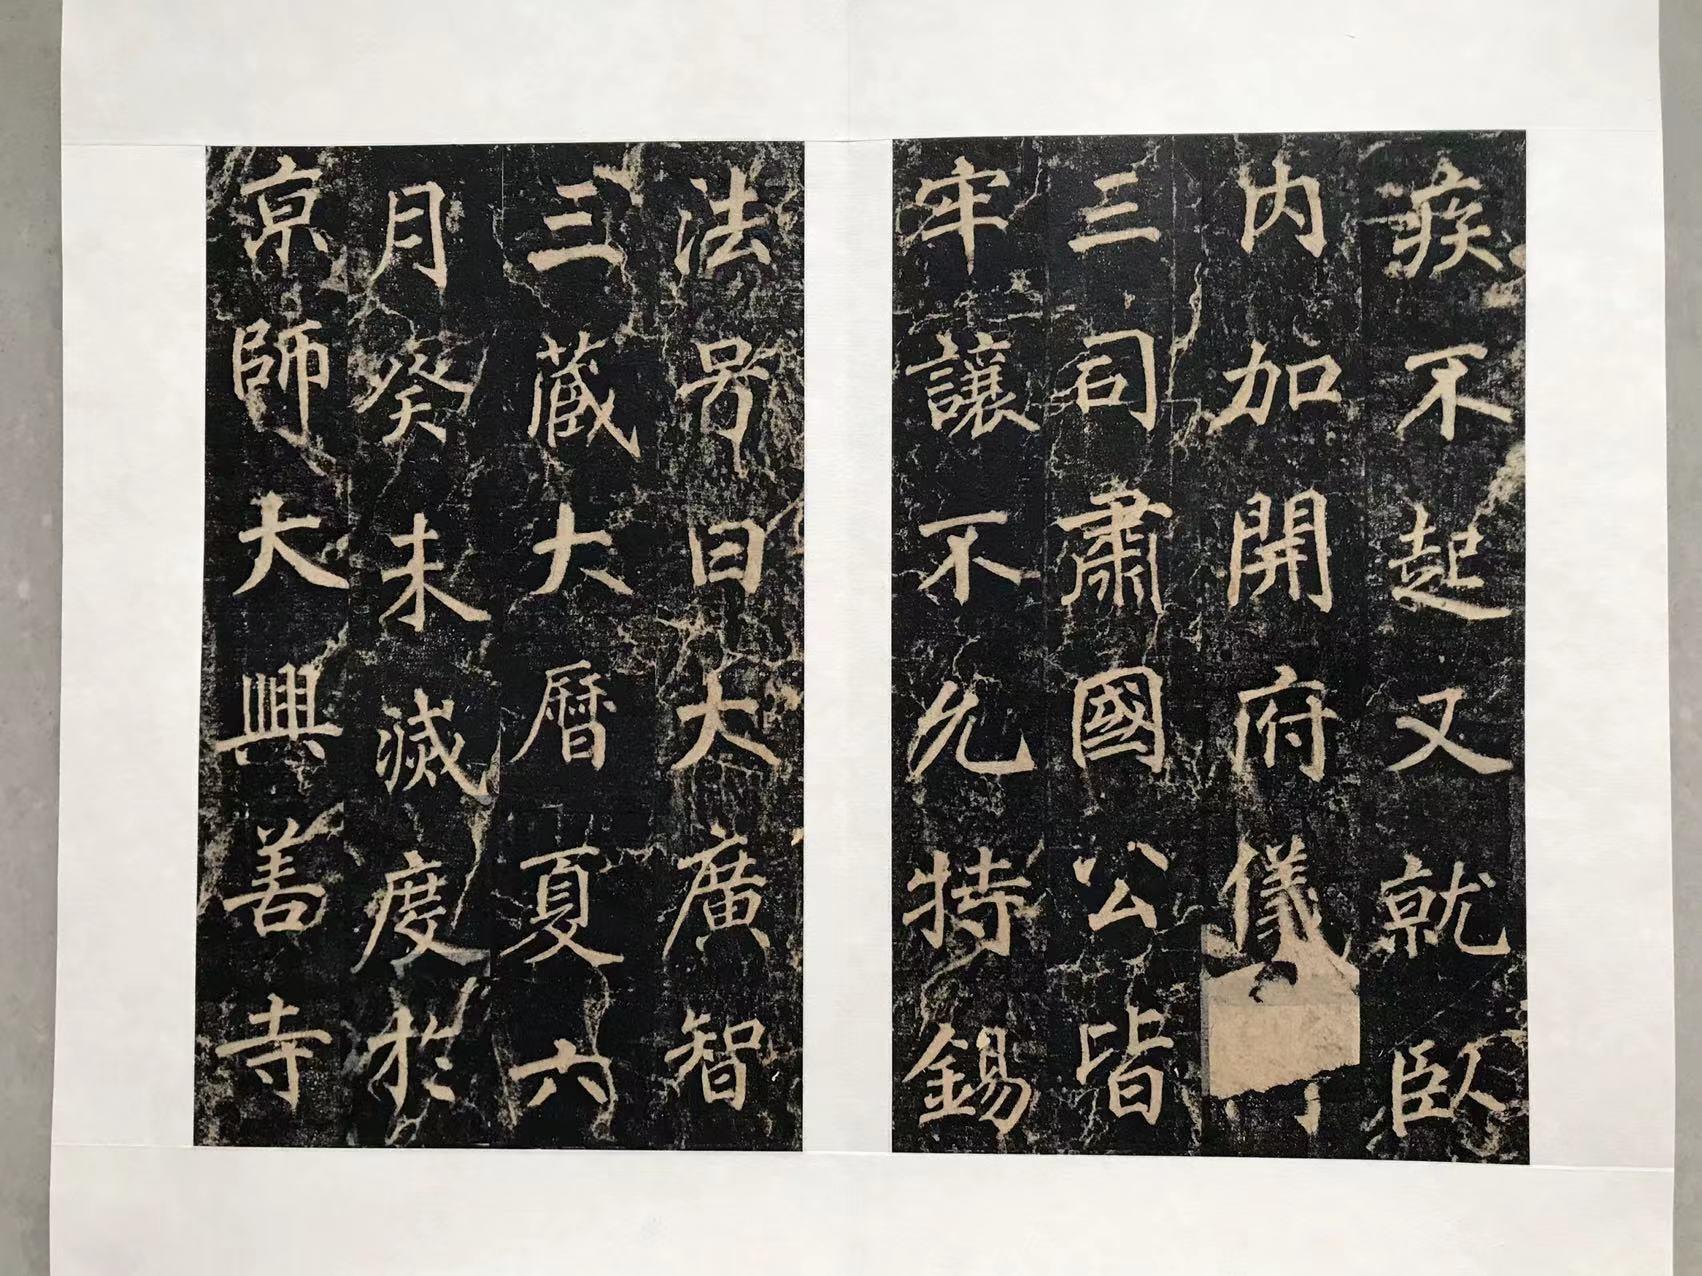 疾不起又就臥
内加開府儀
三司肅國公皆
牢讓不允特錫
法号曰大廣智
三藏大曆夏六
月癸未滅度於
亰師大興善寺